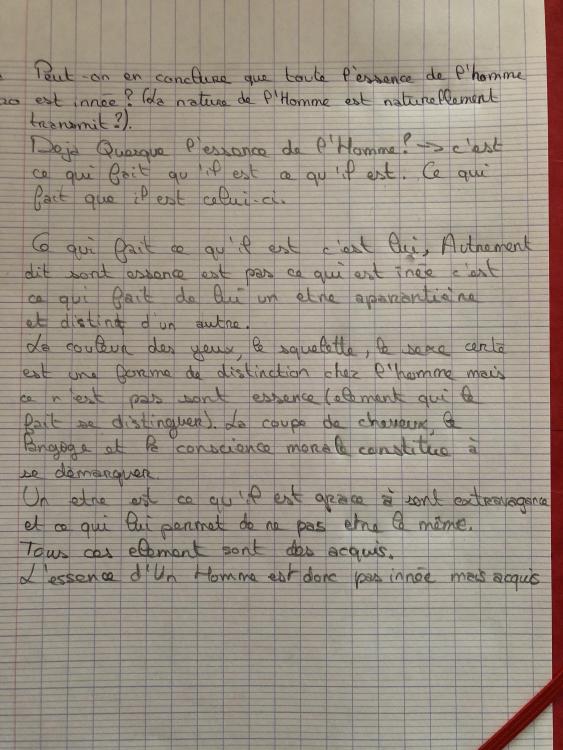 Peut-on en conclure que toute l'essence de l'homme
20 est innée? (La nature de l'Homme est naturellement
transmit?).
Deja Quesque l'essence de l'Homme? → c'est
ce qui fait qu'il est ce qu'il est. Ce qui
fait que il est celui-ci.
Ce qui fait ce qu'il est c'est lui, Autrement
dit sont essence est pas ce qui est inée c'est
ce qui fait de lui un etre
et distinct d'un autre.
La couleur des yeux, le squelette, le sexe certe
est une forme de distinction chez l'homme mais
ce n'est pas sont essence (element qui le
fait se distinguer). La coupe de cheveux, le
langage et la conscience morale constitue à
se démarquer.
Un etre est ce qu'il est grace à sont extravagance
et ce qui lui permet de ne pas etre le même.
Tous ces element sont des acquis.
L'essence d'Un Homme est donc pas innée mais acquis